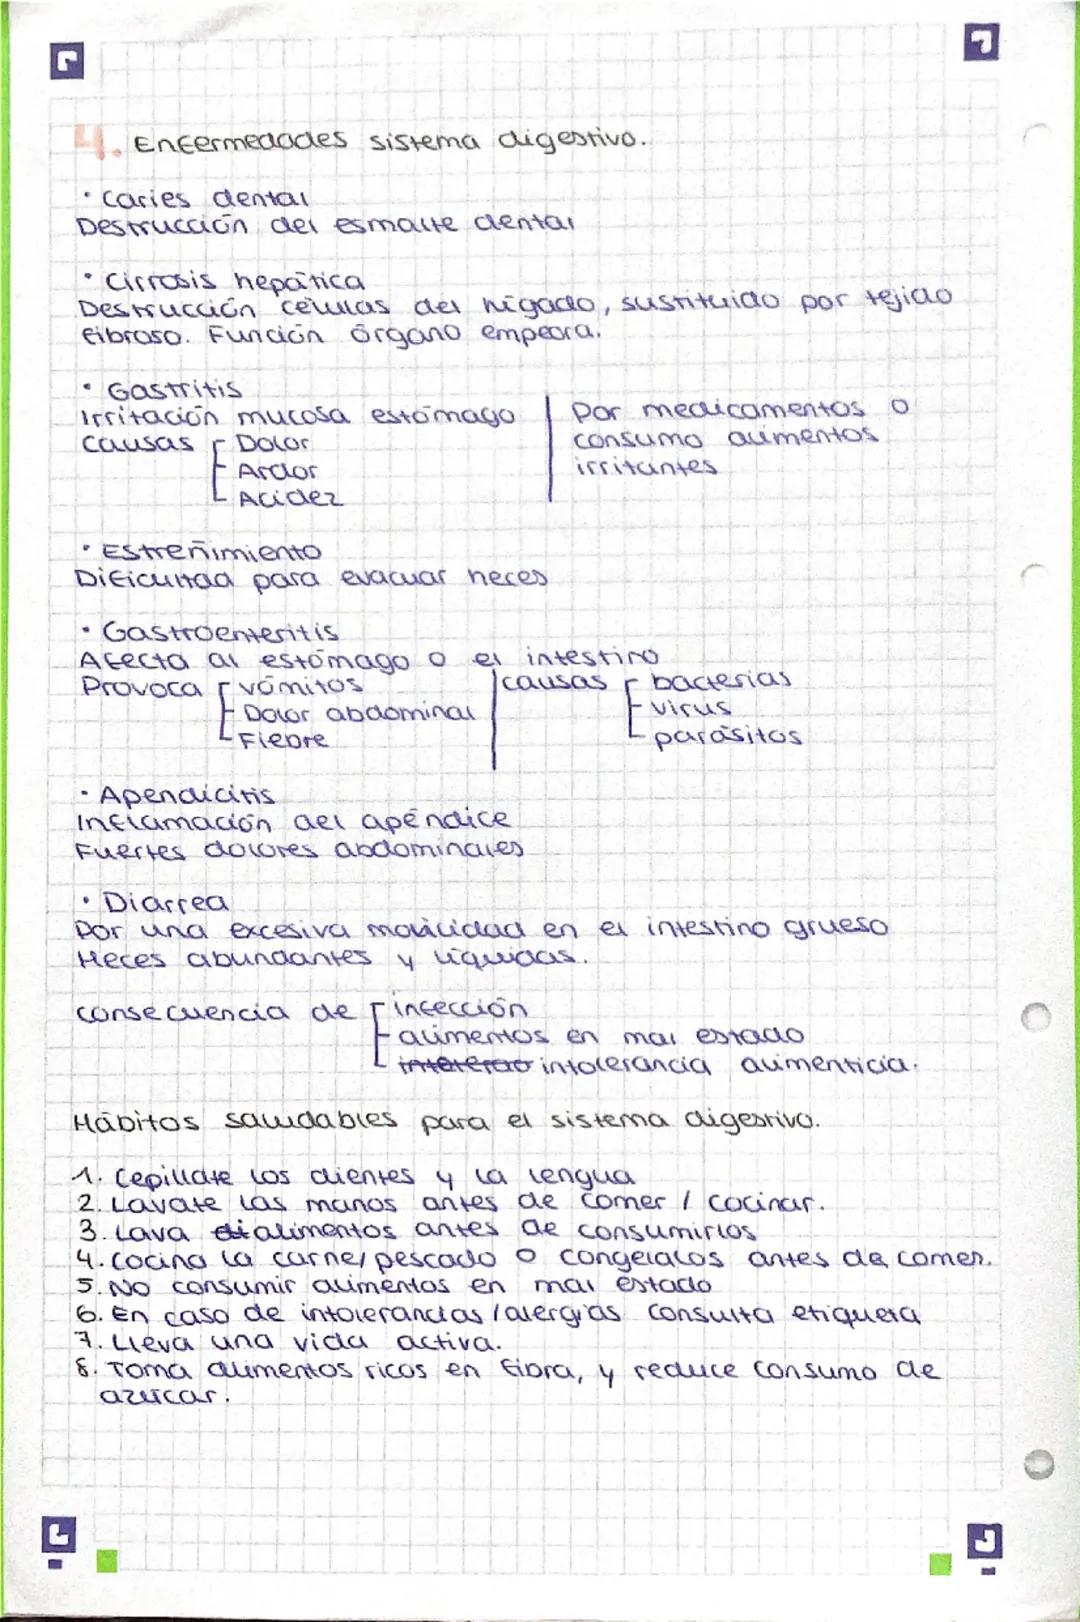 4. Enfermedades sistema digestivo.
· Caries dental
Destrucción del esmalte dental
· Cirrosis hepática
Destrucción células del hígado, sustituido por tejido
fibroso. Función órgano empeora.
· Gastritis
Irritación mucosa estómago
causas
Dolor
Ardor
Acidez
Por medicamentos o
consumo alimentos
irritantes
· Estreñimiento
Dificultad para evacuar heces
· Gastroenteritis
Afecta al estómago o el intestino
Provoca
vómitos
Dolor abdominal
Fiebre
causas
bacterias
virus
parásitos
· Apendicitis
Inflamación del apéndice
Fuertes dolores abdominales
· Diarrea
Por una excesiva movilidad en el intestino grueso
Heces abundantes y líquidas.
consecuencia de
infección
alimentos en mal estado
intolerancia alimenticia.
Hábitos saludables para el sistema digestivo.
1. Cepillate los dientes y la lengua
2. Lavate las manos antes de comer / cocinar.
3. Lava alimentos antes de consumirlos
4. Cocina la carne/pescado o congelalos antes de comer.
5. No consumir alimentos en mal estado
6. En caso de intolerancias/alergias consulta etiqueta
7. Lleva una vida activa.
8. Toma alimentos ricos en fibra, y reduce consumo de
azúcar.